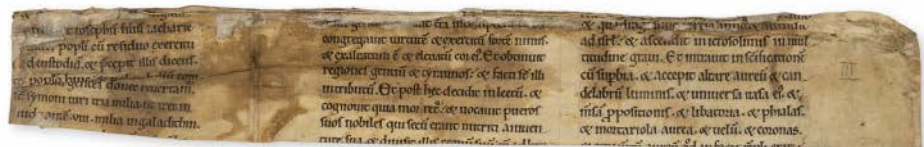 iosephū filiū zacharie
popli cū residuo exercitu
custodiā. & p̄cepit illis dicens.
gentes donec reuertam̄.
symoni uiri tria milia ut iret in
milia in galadithin.
congregauit uirtutē & exercitū fortē nimis.
& exaltatum ē & eleuatū cor ei⁹. Et obtinuit
regiones gentiū & tyrannos. & facti s̄t illi
in tributū. Et post hec decidit in lectū. &
cognouit quia mor̄ret. & uocauit pueros
suos nobiles qui secū erant nutriti a iuuen
tute sua & diuisit illis
ad isrl. & ascendit in ierosolimis in mul
titudine graui. Et intrauit in sc̄ificationē
cū supbia. & accepit altare aureū & can
delabrū luminis. & uniuersa uasa ei⁹. &
m̄sā ppositionis. & libatoria. & phialas.
& mortariola aurea. & uelū. & coronas.
III